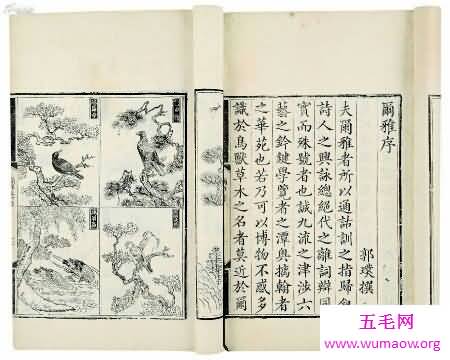 爾雅序
郭璞撰
夫爾雅者所以通詁訓之指歸敘
詩人之興詠總絕代之離詞辯同
實而殊號者也誠九流之津涉六
藝之鈐鍵學覽者之潭奧摛翰者
之華苑也若乃可以博物不惑多
識於鳥獸草木之名者莫近於爾
五毛网
www.wumaow.org